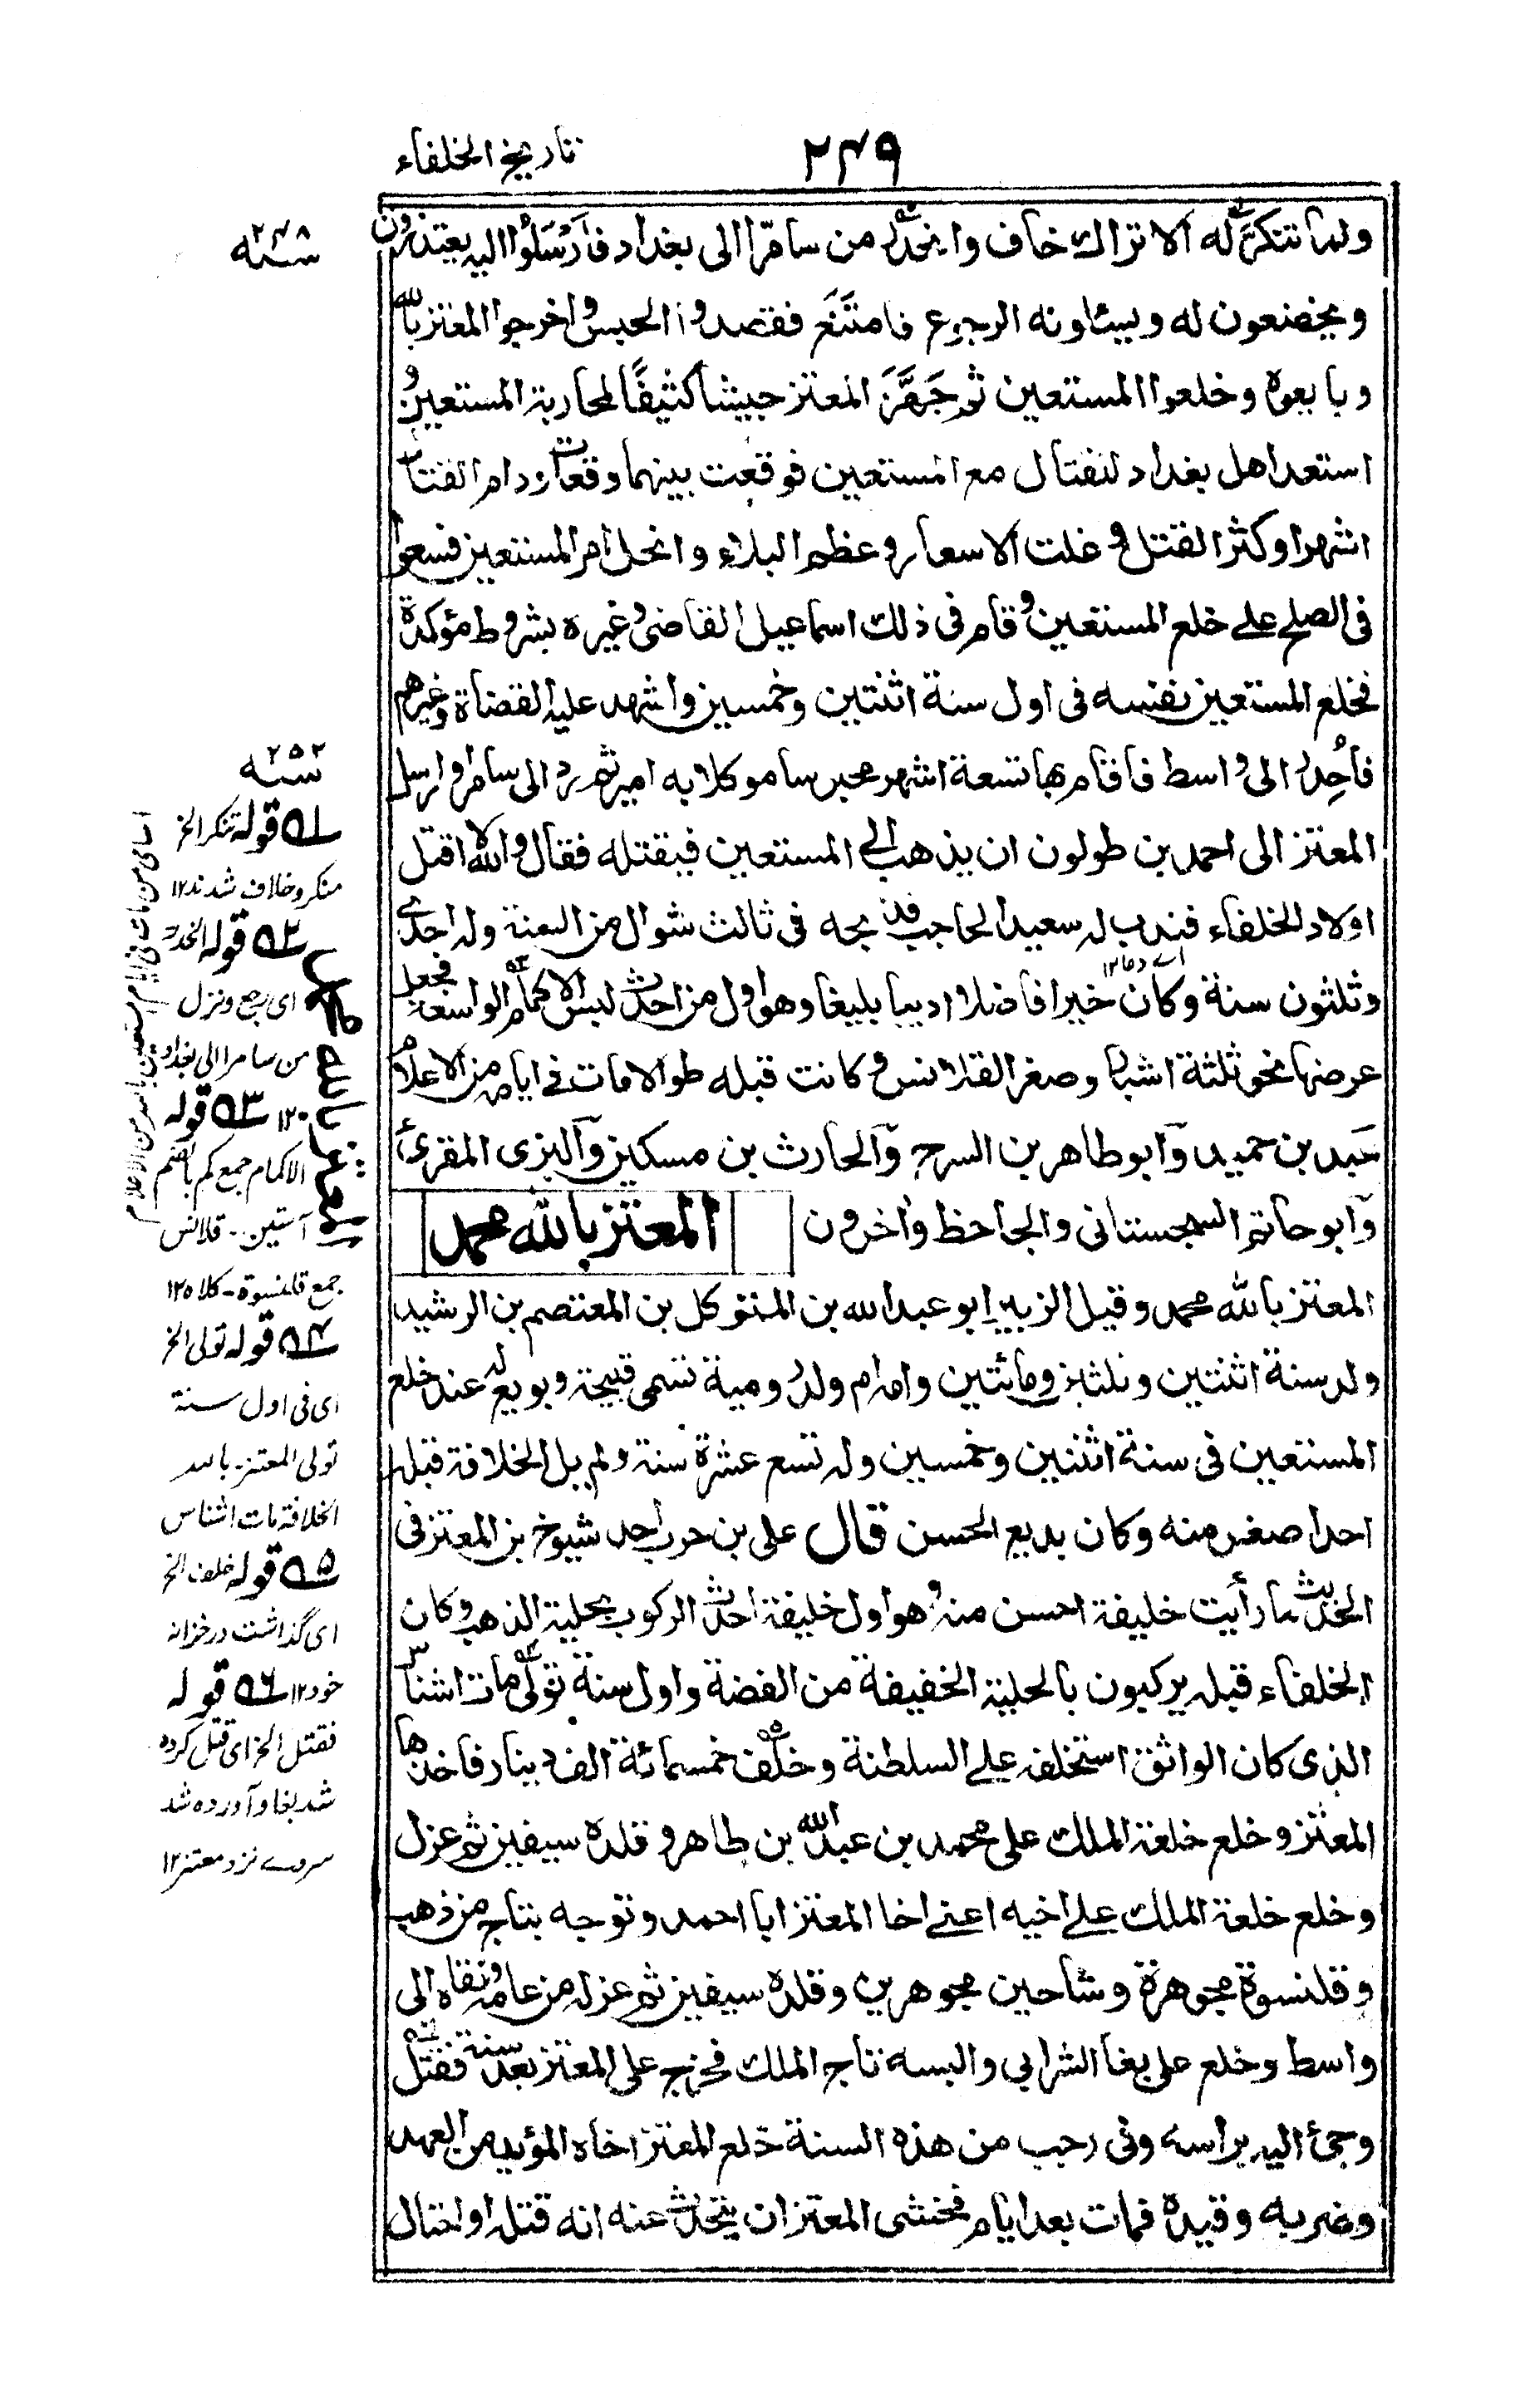 ٢٤٩
تاريخ الخلفاء
ولما تنكر له الاتراك خاف وانحدر من سامرا الى بغداد فارسلوا اليه يعتذرون
ويخضعون له ويسئلونه الرجوع فامتنع فقصدوا الحبس واخرجوا المعتز بالله
وبايعوه وخلعوا المستعين ثم جهز المعتز جيشا كثيفا لمحاربة المستعين و
استعد اهل بغداد للقتال مع المستعين فوقعت بينهما وقعات ودام القتال
اشهرا وكثر القتل وغلت الاسعار وعظم البلاء وانحل امر المستعين فسعوا
فى الصلح على خلع المستعين وقام فى ذلك اسماعيل القاضى وغيره بشروط مؤكدة
فخلع المستعين نفسه فى اول سنة اثنتين وخمسين واشهد عليه القضاة وغيرهم
فاحدر الى واسط فاقام بها تسعة اشهر محبوسا موكلا به امير ثم رد الى سامرا وارسل
المعتز الى احمد بن طولون ان يذهب الى المستعين فيقتله فقال والله لا اقتل
اولاد الخلفاء فندب له سعيد الحاجب فذبحه فى ثالث شوال من السنة وله احدى
وثلثون سنة وكان خيرا فاضلا اديبا بليغا وهو اول من احدث لبس الاكمام الواسعة فجعل
عرضها نحو ثلثة اشبار وصغر القلانس وكانت قبله طوالا مات فى ايامه من الاعلام
عبد بن حميد وابو طاهر بن السرح والحارث بن مسكين والبزى المقرئ
وابو حاتم السجستانى والجاحظ واخرون
المعتز بالله محمد
المعتز بالله محمد وقيل الزبير ابو عبد الله بن المتوكل بن المعتصم بن الرشيد
ولد سنة اثنتين وثلثين ومائتين وامه ام ولد رومية تسمى قبيحة وبويع له عند خلع
المستعين فى سنة اثنتين وخمسين وله تسع عشرة سنة ولم يل الخلافة قبله
احد اصغر منه وكان بديع الحسن قال على بن حرب احد شيوخ بن المعتز فى
الحديث ما رأيت خليفة احسن منه وهو اول خليفة احدث الركوب بحلية الذهب وكان
الخلفاء قبله يركبون بالحلية الخفيفة من الفضة واول سنة تولى مات اشناس
الذى كان الواثق استخلفه على السلطنة وخلف خمسمائة الف دينار فاخذها
المعتز وخلع خلعة الملك على محمد بن عبد الله بن طاهر وقلده سيفين ثم عزل
وخلع خلعة الملك على اخيه اعنى اخا المعتز ابا احمد وتوجه بتاج من ذهب
وقلنسوة مجوهرة وشاحين مجوهرين وقلده سيفين ثم عزله من عامه ونفاه الى
واسط وخلع على بغا الشرابى والبسه تاج الملك فخرج على المعتز بعد سنة فقتل
وجئ اليه براسه وفى رجب من هذه السنة خلع المعتز اخاه المؤيد من العهد
وضربه وقيده فمات بعد ايام فخشى المعتز ان يتحدث عنه انه قتله او احتال
سنة ٢٤٨
سنة ٢٥٢
١ قوله تنكر الخ
منكر وخلاف شدند ١٢
٢ قوله انحدر
اى رجع ونزل
من سامرا الى بغداد
١٢ ٣ قوله
الاكمام جمع كم بالضم
آستين - قلانس
جمع قلنسوة - كلاه ١٢
٤ قوله تولى الخ
اى فى اول سنة
تولى المعتز بالله
الخلافة مات اشناس
٥ قوله خلف الخ
اى گذاشت در خزانه
خود ١٢ ٦ قوله
فقتل الخ اى قتل كرده
شد بغا وآورده شد
سر وے نزد معتز ١٢
اسامى من مات فى ايام مستعين بالله من الاعلام
المعتز بالله محمد